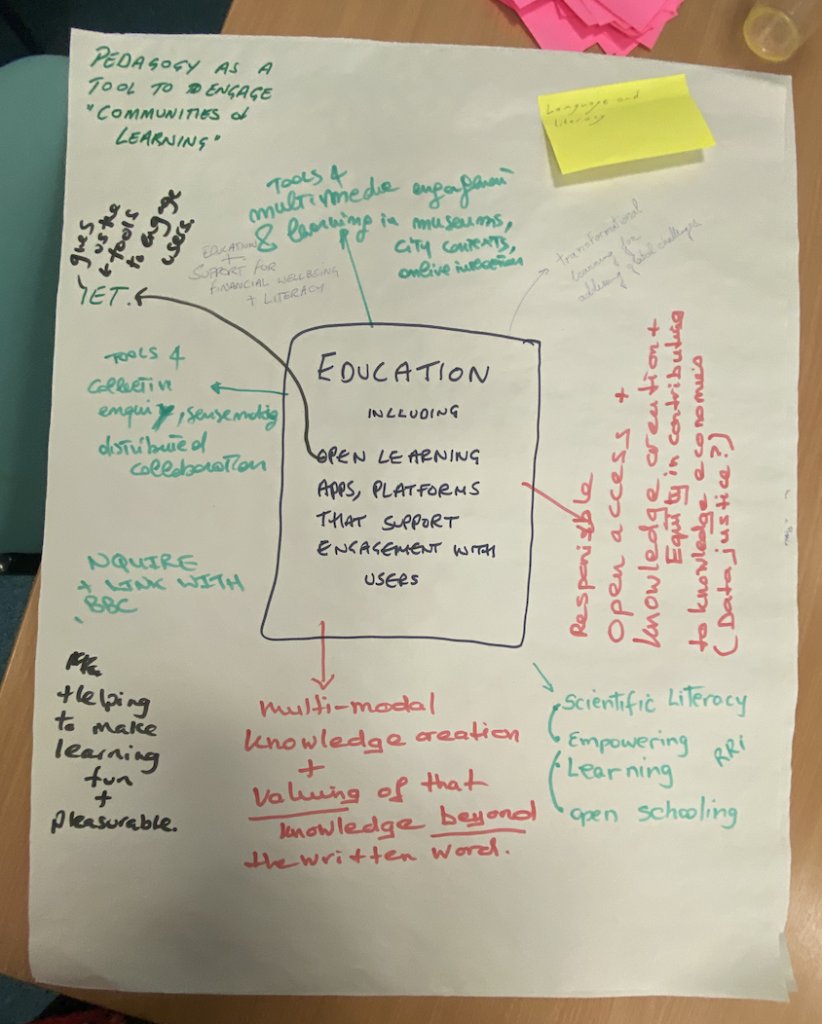 PEDAGOGY AS A
TOOL TO ENGAGE
"COMMUNITIES of
LEARNING"
Language and
literacy
TOOLS 4
multimedia engagement
& learning in museums,
CITY CONTEXTS,
online interaction
EDUCATION
+
SUPPORT FOR
FINANCIAL WELLBEING
+ LITERACY
transformational
learning for
addressing global challenges
gives
us the
tools
to engage
users.
IET.
TOOLS 4
collective
enquiry, sensemaking
distributed
collaboration
EDUCATION
INCLUDING
OPEN LEARNING
APPS, PLATFORMS
THAT SUPPORT
ENGAGEMENT WITH
USERS
Responsible
Open access +
knowledge creation +
Equity in contributing
to knowledge economies
(Data justice?)
NQUIRE
+ LINK WITH
BBC
Helping
to make
learning
fun
+
pleasurable.
multi-modal
knowledge creation
+
valuing of that
knowledge beyond
the written word.
Scientific Literacy
Empowering
Learning
RRi
open schooling